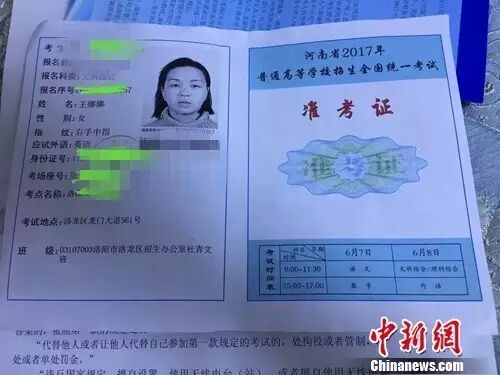 考生
报名
报名科类：文科综合
报名序号：
姓 名：王娜娜
性 别：女
指 纹：右手中指
应试外语：英语
身份证号：
考场座号：第
考点名称：洛
考试地点：洛龙区龙门大道561号
班 级：03107003洛阳市洛龙区招生办公室社青文
班
河南省2017年
普通高等学校招生全国统一考试
准考证
准 考 证
考试时间表
科目 日期 时间 6月7日 6月8日
9:00-11:30 语 文 文科综合/理科综合
15:00-17:00 数 学 外 语
“代替他人或者让他人代替自己参加第一款规定的考试的，处拘役或者管制，
处或者单处罚金。”
中新网
Chinanews.com